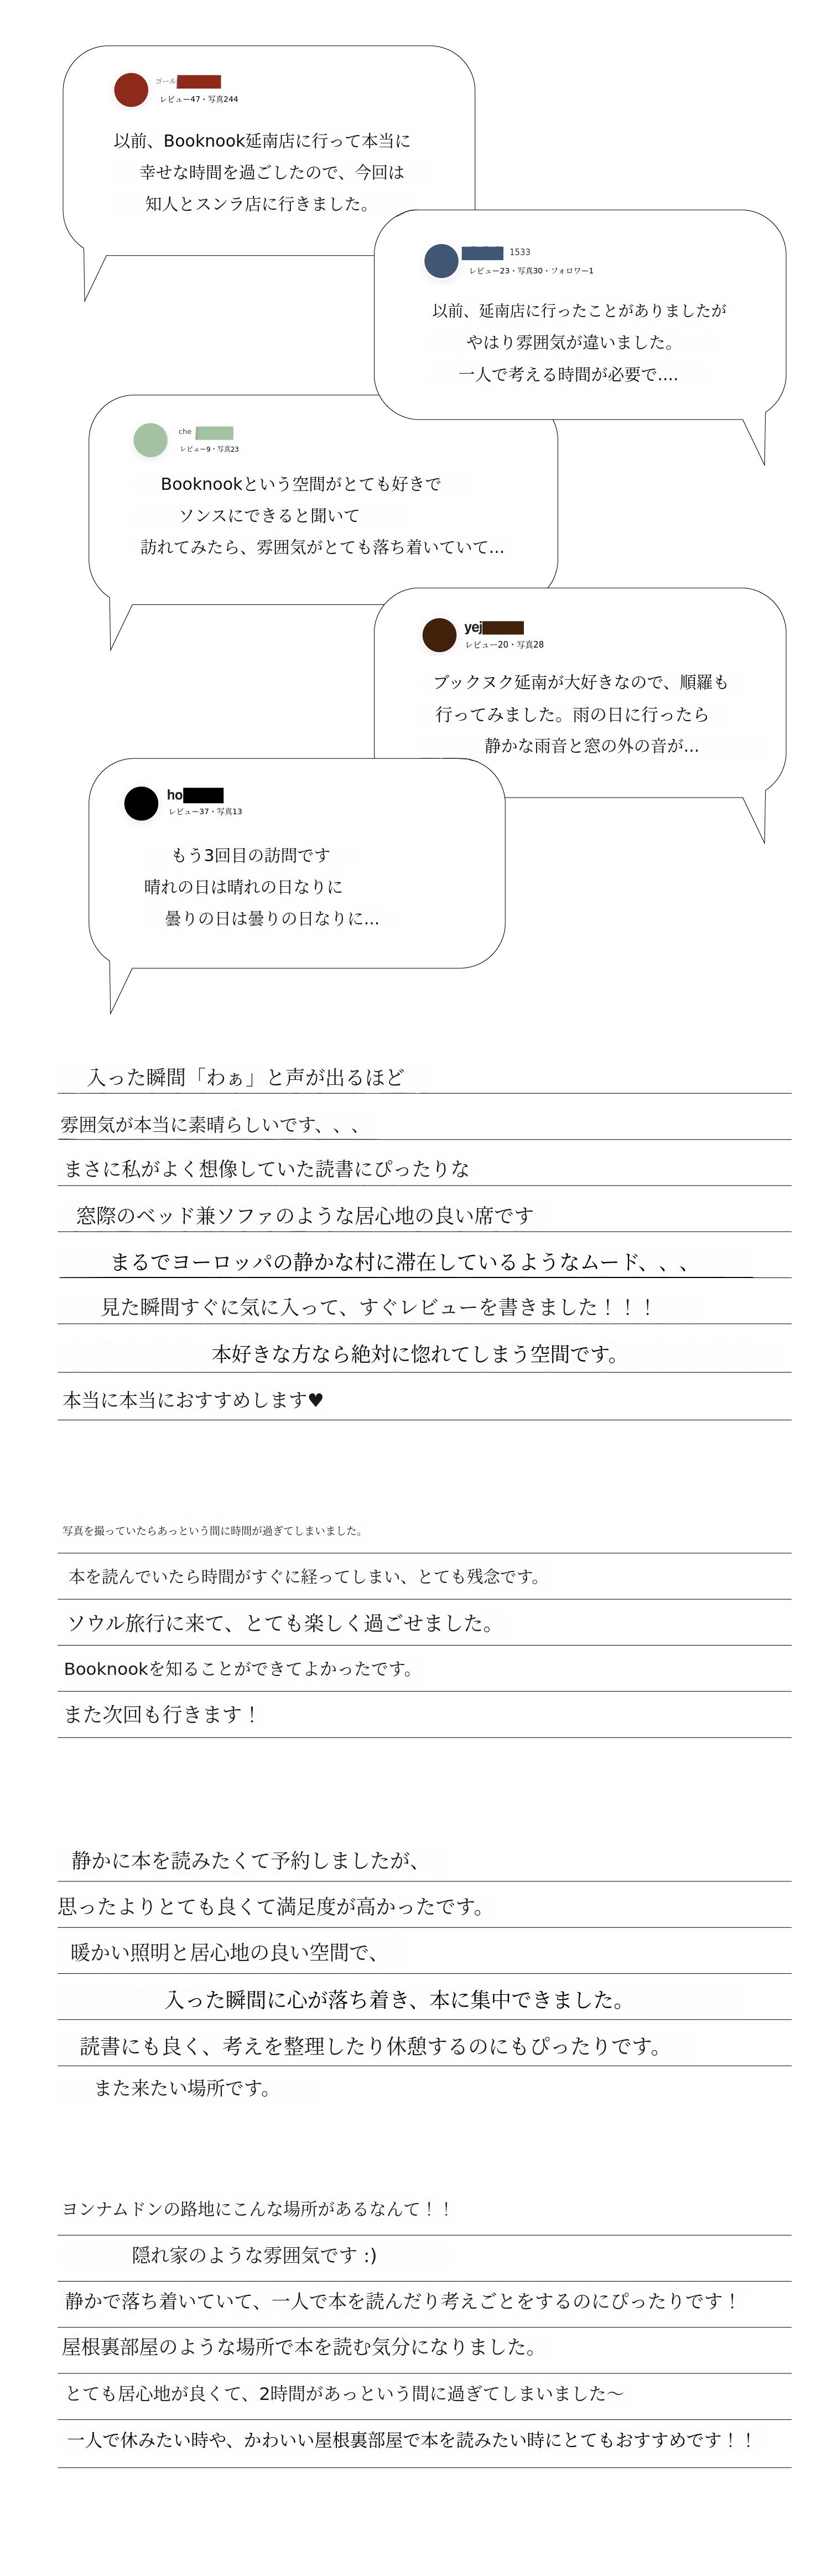 ゴール
レビュー47・写真244
以前、Booknook延南店に行って本当に
幸せな時間を過ごしたので、今回は
知人とスンラ店に行きました。
1533
レビュー23・写真30・フォロワー1
以前、延南店に行ったことがありましたが
やはり雰囲気が違いました。
一人で考える時間が必要で....
che
レビュー9・写真23
Booknookという空間がとても好きで
ソンスにできると聞いて
訪れてみたら、雰囲気がとても落ち着いていて...
yej
レビュー20・写真28
ブックヌク延南が大好きなので、順羅も
行ってみました。雨の日に行ったら
静かな雨音と窓の外の音が...
ho
レビュー37・写真13
もう3回目の訪問です
晴れの日は晴れの日なりに
曇りの日は曇りの日なりに...
入った瞬間「わぁ」と声が出るほど
雰囲気が本当に素晴らしいです、、、
まさに私がよく想像していた読書にぴったりな
窓際のベッド兼ソファのような居心地の良い席です
まるでヨーロッパの静かな村に滞在しているようなムード、、、
見た瞬間すぐに気に入って、すぐレビューを書きました！！！
本好きな方なら絶対に惚れてしまう空間です。
本当に本当におすすめします♥
写真を撮っていたらあっという間に時間が過ぎてしまいました。
本を読んでいたら時間がすぐに経ってしまい、とても残念です。
ソウル旅行に来て、とても楽しく過ごせました。
Booknookを知ることができてよかったです。
また次回も行きます！
静かに本を読みたくて予約しましたが、
思ったよりとても良くて満足度が高かったです。
暖かい照明と居心地の良い空間で、
入った瞬間に心が落ち着き、本に集中できました。
読書にも良く、考えを整理したり休憩するのにもぴったりです。
また来たい場所です。
ヨンナムドンの路地にこんな場所があるなんて！！
隠れ家のような雰囲気です :)
静かで落ち着いていて、一人で本を読んだり考えごとをするのにぴったりです！
屋根裏部屋のような場所で本を読む気分になりました。
とても居心地が良くて、2時間があっという間に過ぎてしまいました〜
一人で休みたい時や、かわいい屋根裏部屋で本を読みたい時にとてもおすすめです！！